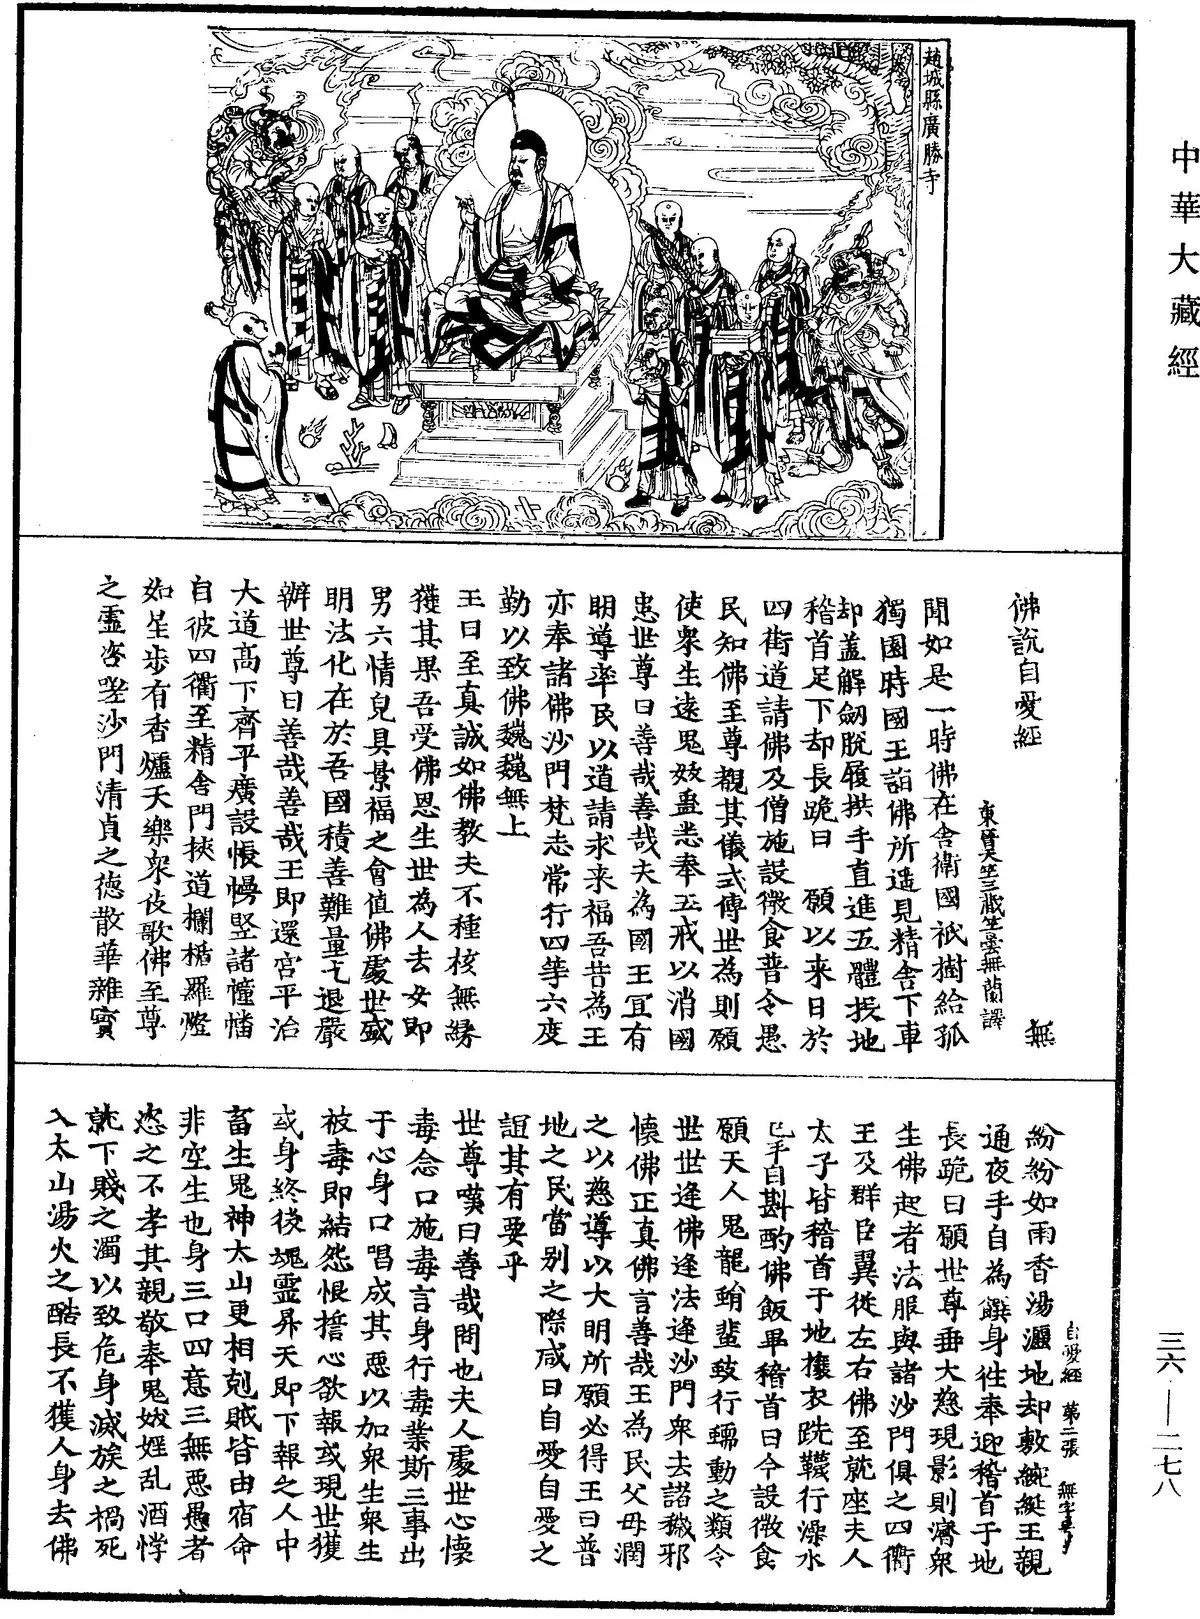 中華大藏經
趙城縣廣勝寺
佛說自愛經 無
東晉天竺三藏竺曇無蘭譯
聞如是一時佛在舍衛國祇樹給孤
獨園時國王詣佛所遥見精舍下車
却盖解劔脫履拱手直進五體投地
稽首足下却長跪曰 願以来日於
四街道請佛及僧施設微食普令愚
民知佛至尊覩其儀式傳世為則願
使衆生遠鬼妖蠱悉奉五戒以消國
患世尊曰善哉善哉夫為國王宜有
明導率民以道請求来福吾昔為王
亦奉諸佛沙門梵志常行四等六度
勤以致佛巍巍無上
王曰至真誠如佛教夫不種核無緣
獲其果吾受佛恩生世為人去女即
男六情皃具景福之會值佛處世盛
明法化在於吾國積善難量乞退嚴
辦世尊曰善哉善哉王即還宮平治
大道高下齊平廣設帳幔竪諸幢幡
自彼四衢至精舍門挾道欄楯羅燈
如星步有香爐天樂衆伎歌佛至尊
之靈咨嗟沙門清貞之德散華雜寶
自愛經 第二張 無字号
紛紛如雨香湯灑地却敷綩綖王親
通夜手自為饌身往奉迎稽首于地
長跪曰願世尊垂大慈現影則濟衆
生佛起者法服與諸沙門俱之四衢
王及群臣翼從左右佛至就座夫人
太子皆稽首于地攘衣跣韈行澡水
已手自斟酌佛飯畢稽首曰今設微食
願天人鬼龍蜎蜚蚑行蠕動之類令
世世逢佛逢法逢沙門衆去諸穢邪
懷佛正真佛言善哉王為民父母潤
之以慈導以大明所願必得王曰普
地之民當別之際咸曰自愛自愛之
誼其有要乎
世尊嘆曰善哉問也夫人處世心懷
毒念口施毒言身行毒業斯三事出
于心身口唱成其惡以加衆生衆生
被毒即結怨恨誓心欲報或現世獲
或身終後魂靈昇天即下報之人中
畜生鬼神太山更相剋賊皆由宿命
非空生也身三口四意三無惡愚者
恣之不孝其親敬奉鬼妖婬乱酒悖
就下賤之濁以致危身滅族之禍死
入太山湯火之酷長不獲人身去佛
三六—二七八